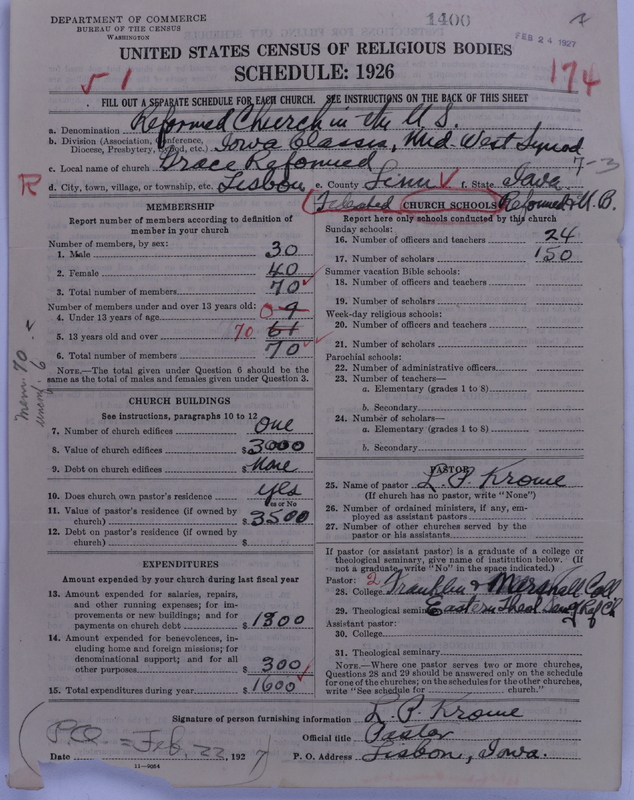 DEPARTMENT OF COMMERCE
BUREAU OF THE CENSUS
WASHINGTON
1400
FEB 24 1927
UNITED STATES CENSUS OF RELIGIOUS BODIES
SCHEDULE: 1926
174
FILL OUT A SEPARATE SCHEDULE FOR EACH CHURCH. SEE INSTRUCTIONS ON THE BACK OF THIS SHEET
a. Denomination Reformed Church in the U.S.
b. Division (Association, Conference, Diocese, Presbytery, Synod, etc.) Iowa Classis, Mid-West Synod
c. Local name of church Grace Reformed 7-3
R
d. City, town, village, or township, etc. Lisbon e. County Linn f. State Iowa
MEMBERSHIP
Report number of members according to definition of
member in your church
Number of members, by sex:
1. Male 30
2. Female 40
3. Total number of members 70
Number of members under and over 13 years old:
4. Under 13 years of age 0 9
5. 13 years old and over 70 61
6. Total number of members 70
NOTE.—The total given under Question 6 should be the
same as the total of males and females given under Question 3.
mem. 70
CHURCH BUILDINGS
See instructions, paragraphs 10 to 12
7. Number of church edifices One
8. Value of church edifices $3000
9. Debt on church edifices $None
10. Does church own pastor's residence yes
Yes or No
11. Value of pastor's residence (if owned by
church) $3500
12. Debt on pastor's residence (if owned by
church) $
EXPENDITURES
Amount expended by your church during last fiscal year
13. Amount expended for salaries, repairs,
and other running expenses; for im-
provements or new buildings; and for
payments on church debt $1300
14. Amount expended for benevolences, in-
cluding home and foreign missions; for
denominational support; and for all
other purposes $300
15. Total expenditures during year $1600
(Federated CHURCH SCHOOLS Reformed & U.B.
Report here only schools conducted by this church
Sunday schools:
16. Number of officers and teachers 24
17. Number of scholars 150
Summer vacation Bible schools:
18. Number of officers and teachers
19. Number of scholars
Week-day religious schools:
20. Number of officers and teachers
21. Number of scholars
Parochial schools:
22. Number of administrative officers
23. Number of teachers—
a. Elementary (grades 1 to 8)
b. Secondary
24. Number of scholars—
a. Elementary (grades 1 to 8)
b. Secondary
PASTOR
25. Name of pastor L. P. Krome
(If church has no pastor, write "None")
26. Number of ordained ministers, if any, em-
ployed as assistant pastors
27. Number of other churches served by the
pastor or his assistants
If pastor (or assistant pastor) is a graduate of a college or
theological seminary, give name of institution below. (If
not a graduate, write "No" in the space indicated.)
Pastor: 2
28. College Franklin & Marshall Coll
29. Theological seminary Eastern Theol Sem of Ref Ch
Assistant pastor:
30. College
31. Theological seminary
NOTE.—Where one pastor serves two or more churches,
Questions 28 and 29 should be answered only on the schedule
for one of the churches; on the schedules for the other churches,
write "See schedule for church."
Signature of person furnishing information L. P. Krome
Official title Pastor
P.O. = Feb. 22, 1927
Date
P. O. Address Lisbon, Iowa.
11—9064